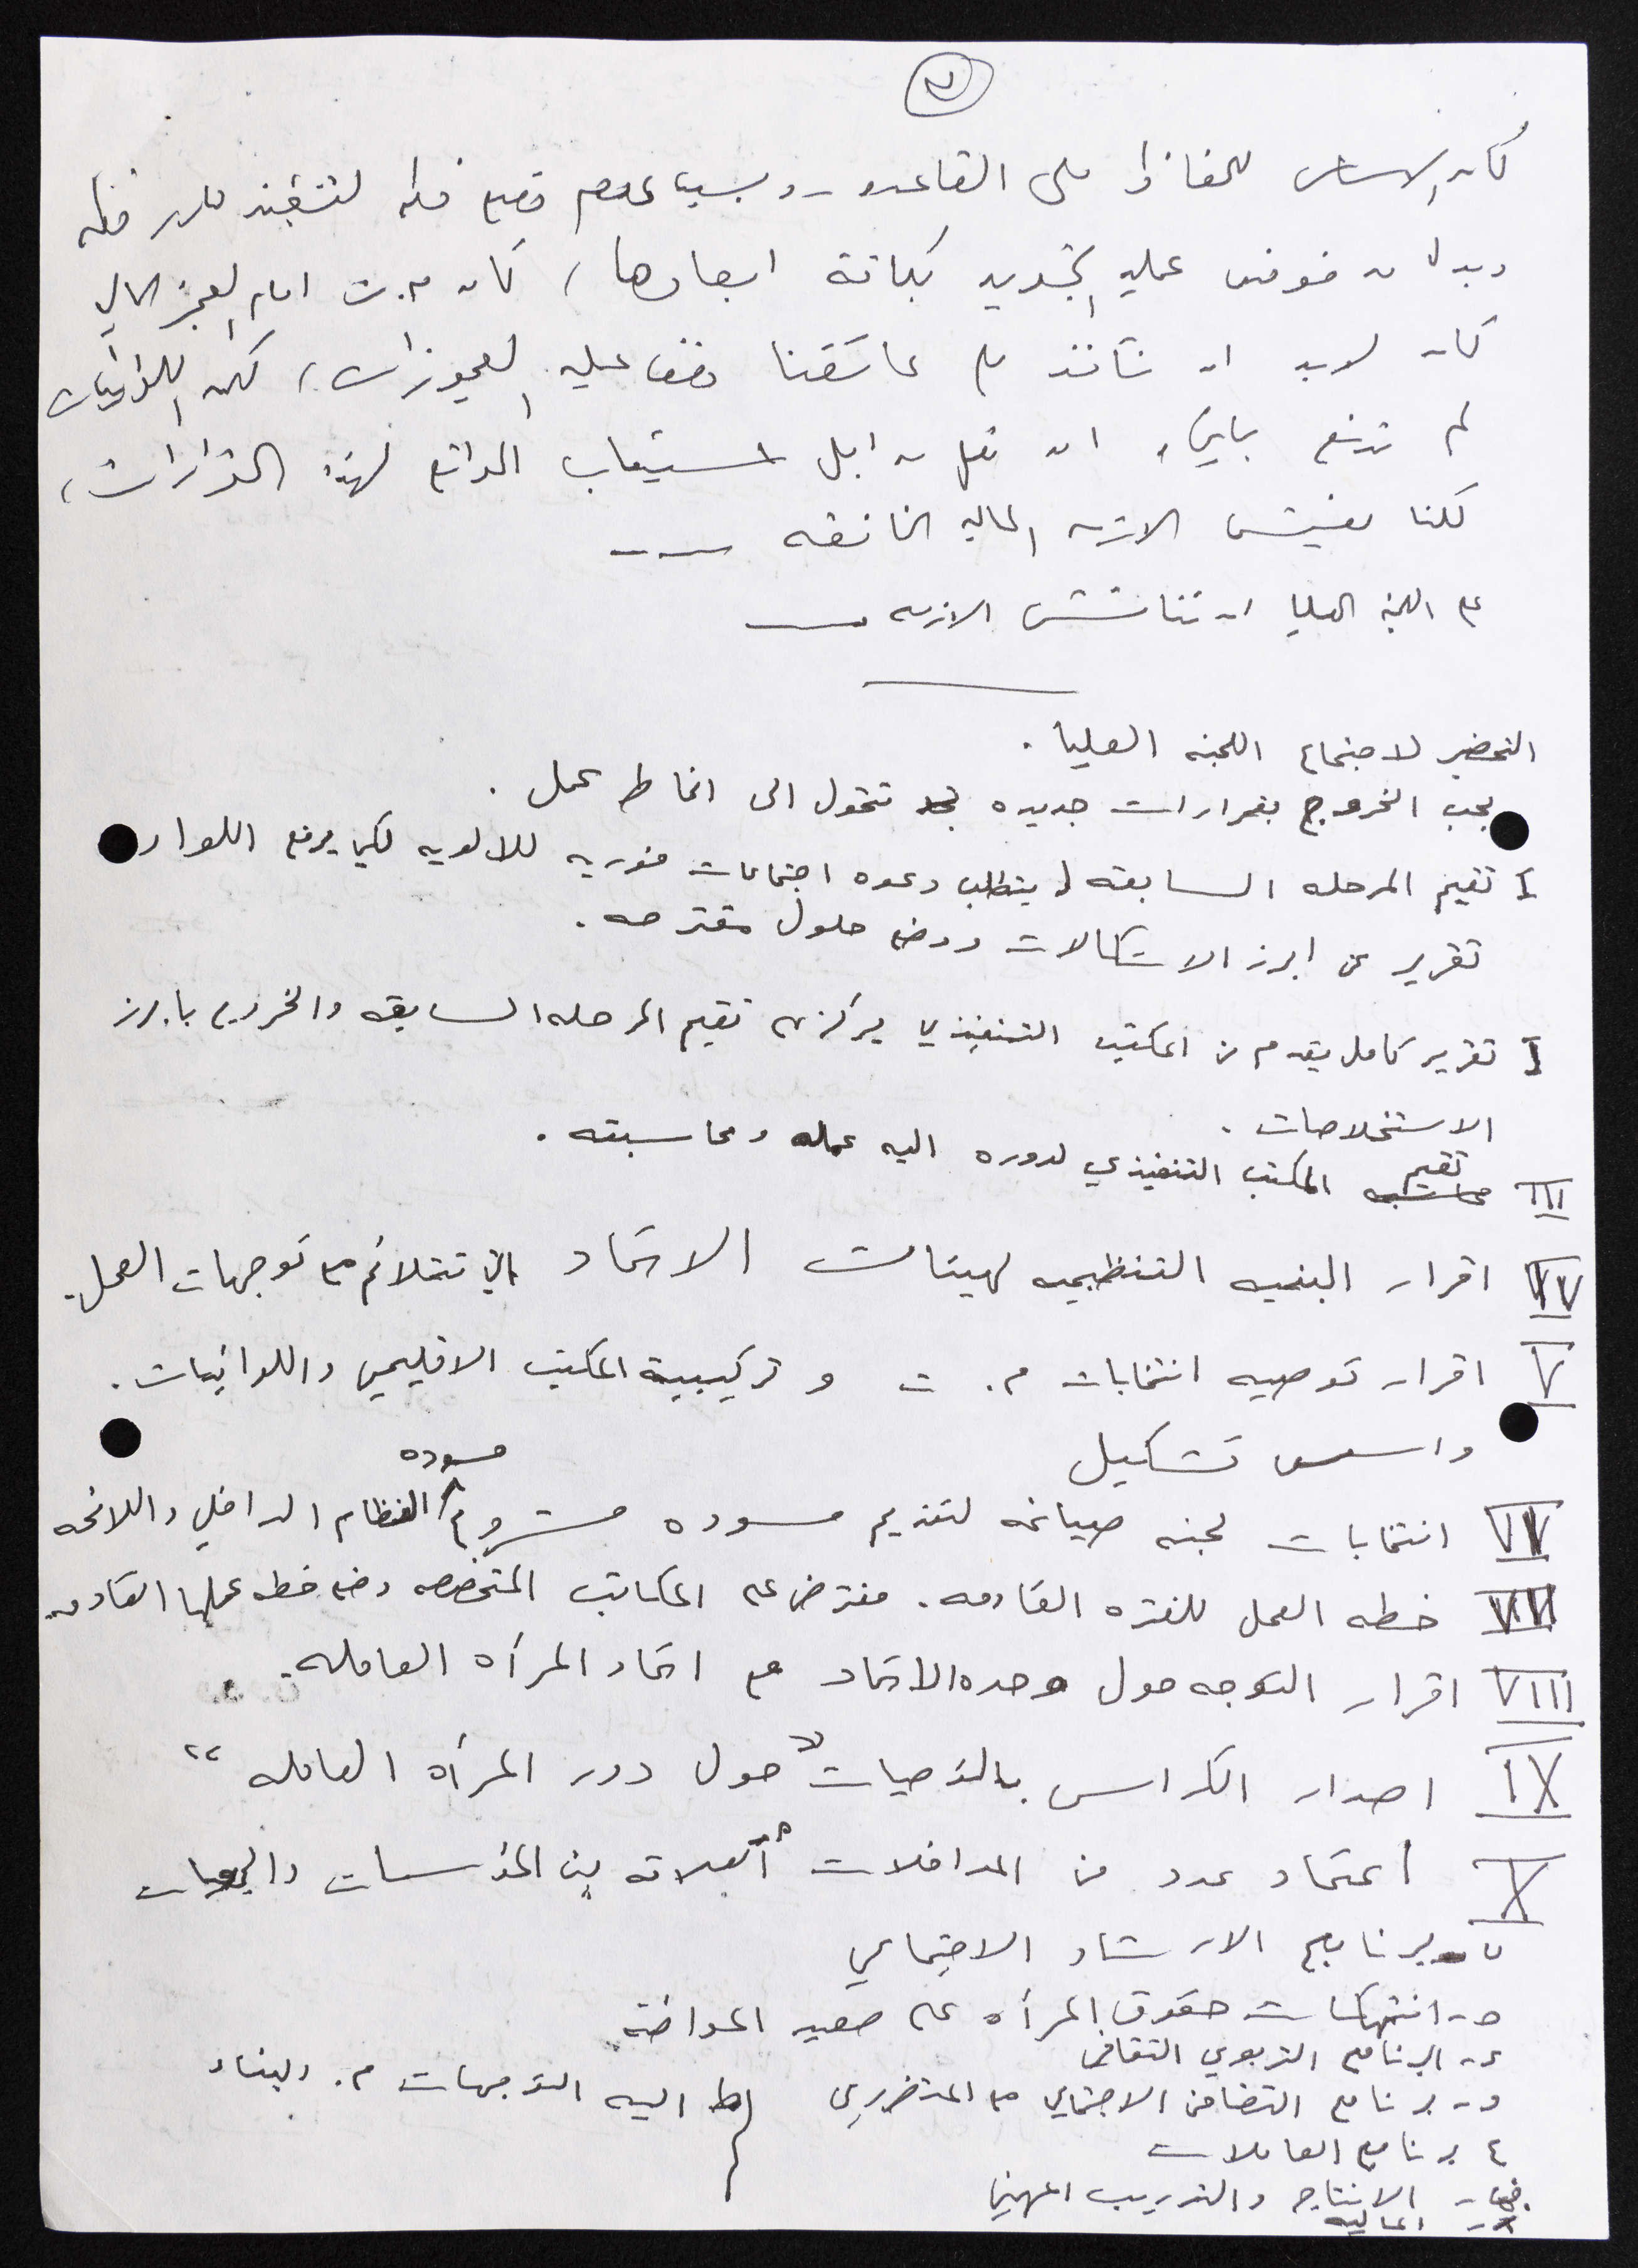 كان الاساس للحفاظ على القاعده - وبسبب عدم وضع خطه لتنفيذ
وبدلا من خوض عملية التجديد بكافة ابعادها، كان م.ت امام العجز المالي
كان لابد ان نأخذ على عاتقنا وقف عليه العجوزات، لكن اللوائيات
لم تدفع باتجاه ان تعمل من اجل استيعاب الواقع لهذه القرارات،
لكننا نعيش الازمه الماليه الخانقه ---
على اللجنة العليا ان تناقش الازمه
التحضير لاجتماع اللجنه العليا.
يجب الخروج بقرارات جديده تتحول الى انماط عمل.
I تقيم المرحله السابقه يتطلب دعوه اجتماعات فوريه للالويه لكي يرفع اللواء
تقرير عن ابرز الاشكالات ووضع حلول مقترحه.
I تقرير كامل يقدم من المكتب التنفيذي يركز على تقيم المرحله السابقه والخروج بابرز
الاستخلاصات.
III تقيم المكتب التنفيذي لدوره اليه عمله ومحاسبته.
IV اقرار البنيه التنظيميه لهيئات الاتحاد التي تتلائم مع توجهات العمل.
V اقرار توصيه انتخابات م. ت و تركيبية المكتب الاقليمي واللوائيات.
واسس تشكيل
VI انتخابات لجنه صياغه لتقديم مسوده مشروع مسوده النظام الداخلي واللائحه
VII خطه العمل للفتره القادمه. مفترض على المكاتب المتخصصه وضع خطه عملها القادمه
VIII اقرار التوجه حول وحده الاتحاد مع اتحاد المرأه العامله.
IX اصدار الكراس بالتوصيات "حول دور المرأه العامله"
X اعتماد عدد من المداخلات العلاقه بين المؤسسات
برنامج الارشاد الاجتماعي
٥- انتهاكات حقوق المرأه على صعيد المواطنة
٤- البرنامج التربوي الثقافي
و- برنامج التضامن الاجتماعي مع المتضررين اليه التوجهات م. والبناء
٤ برنامج العاملات
الانتاج والتدريب المهني
الماليه